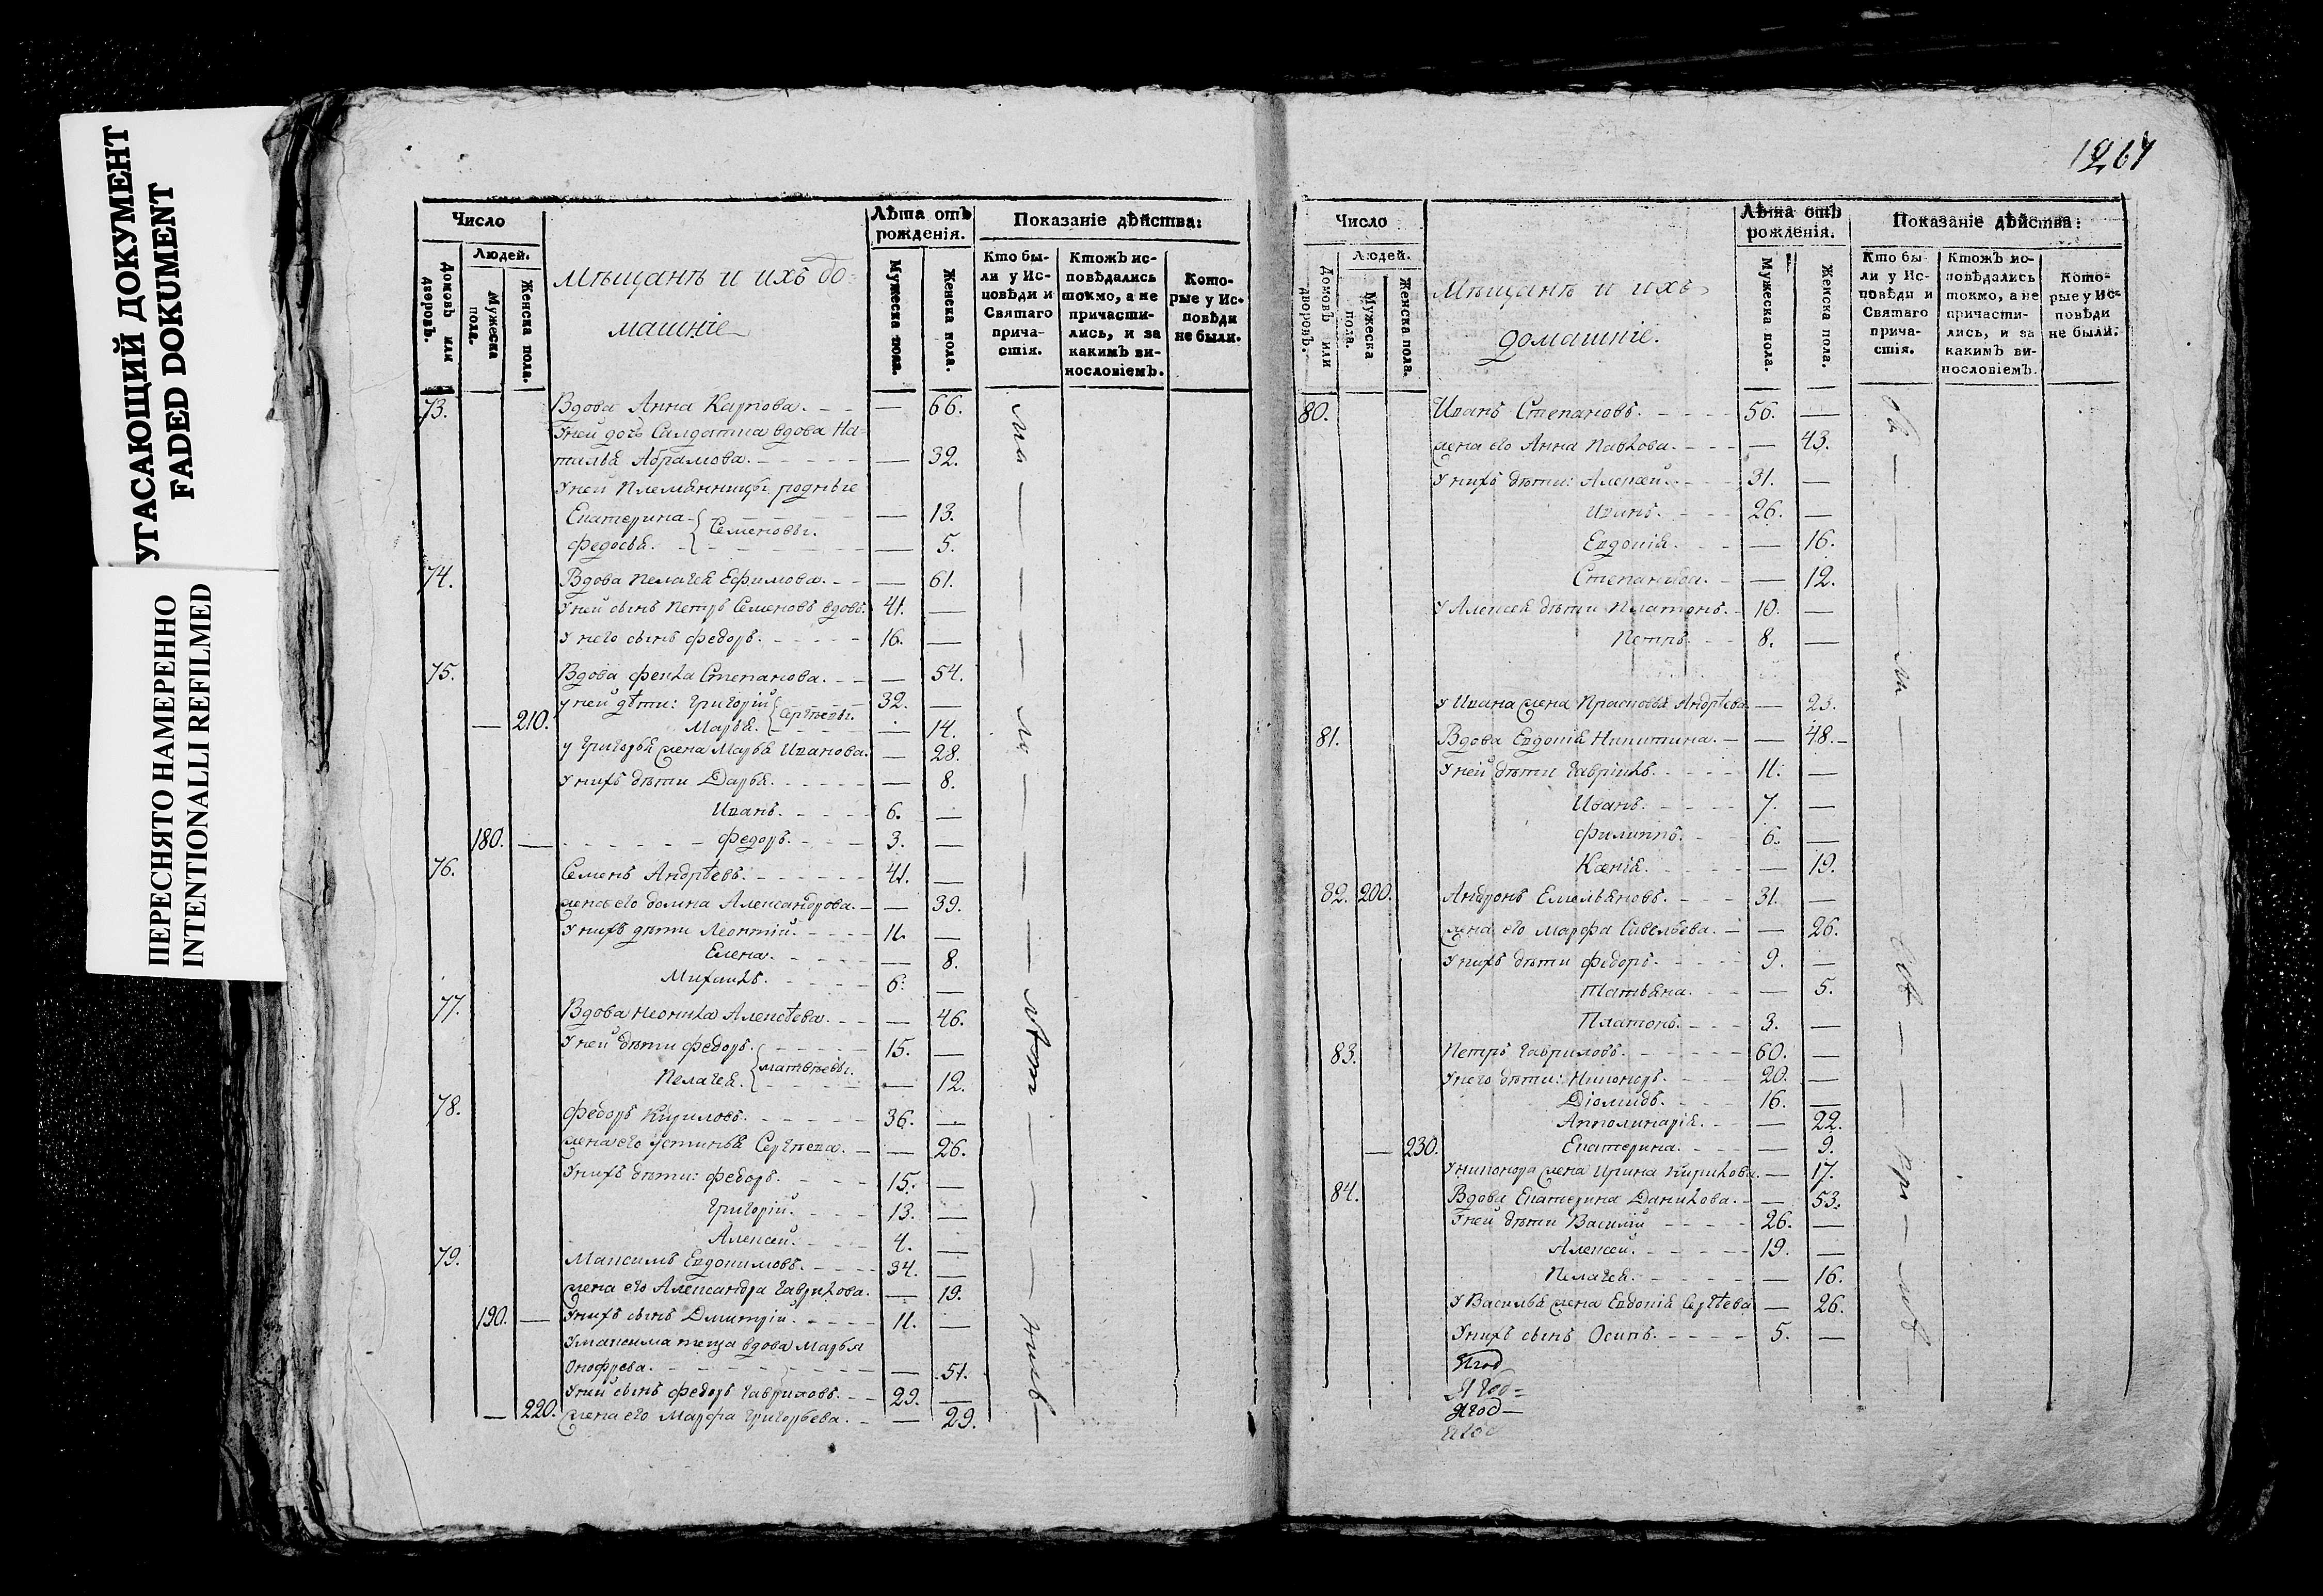 УГАСАЮЩИЙ ДОКУМЕНТ
FADED DOKUMENT
ПЕРЕСНЯТО НАМЕРЕННО
INTENTIONALLI REFILMED
Число
Людей.
Домовъ или дворовъ.
Мужеска пола.
Женска пола.
Мѣщанъ и ихъ до=
машніе
Лѣта отъ рожденія.
Мужеска пола.
Женска пола.
Показаніе дѣйства:
Кто бы-
ли у Ис-
повѣди и
Святаго
прича-
стія.
Ктожъ ис-
повѣдались
токмо, а не
причасти-
лись, и за
какимъ ви-
нословіемъ.
Кото-
рые у Ис-
повѣди
не были.
73. Вдова Анна Карпова. — 66.
У ней дочь Салдатка вдова На=
талья Абрамова. — 32.
У ней Племянницы родные
Екатерина — 13.
Семеновы.
Федосья. — 5.
74. Вдова Пелагея Ефимова. — 61.
У ней сынъ Петръ Семеновъ вдовъ. 41. —
У него сынъ Федоръ. 16. —
75. Вдова Фекла Степанова. — 54.
У ней дѣти: Григорій 32. —
Сергѣевы.
— 210. Марья. — 14.
У Григорья жена Марья Иванова. — 28.
У нихъ дѣти Дарья. — 8.
Иванъ. 6. —
180. — Федоръ. 3. —
76. Семенъ Андрѣевъ. 41. —
жена его Домна Александрова. — 39.
У нихъ дѣти Леонтій. 11. —
Елена. — 8.
Михаилъ. 6. —
77. Вдова Неонила Алексѣева. — 46.
У ней дѣти Федоръ. 15. —
Матвѣевы.
Пелагея. — 12.
78. Федоръ Кириловъ. 36. —
жена его Устинья Сергѣева. — 26.
У нихъ дѣти: Федоръ. 15. —
Григорій. 13. —
Алексей. 4. —
79. Максимъ Евдокимовъ. 34. —
жена его Александра Гаврилова. — 19.
190. — У нихъ сынъ Дмитрій. 11. —
У Максима теща вдова Марья
Онофрева. — 51.
У ней сынъ Федоръ Гавриловъ. 29. —
— 220. жена его Марфа Григорьева. — 29.
1267
Число
Людей.
Домовъ или дворовъ.
Мужеска пола.
Женска пола.
Мѣщанъ и ихъ
домашніе.
Лѣта отъ рожденія.
Мужеска пола.
Женска пола.
Показаніе дѣйства:
Кто бы-
ли у Ис-
повѣди и
Святаго
прича-
стія.
Ктожъ ис-
повѣдались
токмо, а не
причасти-
лись, и за
какимъ ви-
нословіемъ.
Кото-
рые у Ис-
повѣди
не были.
80. Иванъ Степановъ. 56. —
жена его Анна Павлова. — 43.
У нихъ дѣти: Алексей. 31. —
Иванъ. 26. —
Евдокія. — 16.
Степанида. — 12.
У Алексея дѣти Платонъ. 10. —
Петръ. 8. —
У Ивана жена Прасковья Андрѣева — 23.
81. Вдова Евдокія Никитина. — 48.
У ней дѣти Гавріилъ. 11. —
Иванъ. 7. —
Филиппъ. 6. —
Ксенія. — 19.
82. 200. Андронъ Емельяновъ. 31. —
жена его Марфа Савельева. — 26.
У нихъ дѣти Федоръ. 9. —
Татьяна. — 5.
Платонъ. 3. —
83. Петръ Гавриловъ. 60. —
У него дѣти: Никоноръ. 20. —
Діомидъ. 16. —
Апполинарія. — 22.
— 230. Екатерина. — 9.
У Никонора жена Ирина Кирилова. — 17.
84. Вдова Екатерина Данилова. — 53.
У ней дѣти Василій 26. —
Алексей. 19. —
Пелагея. — 16.
У Василья жена Евдокія Сергѣева — 26.
У нихъ сынъ Осипъ. 5. —